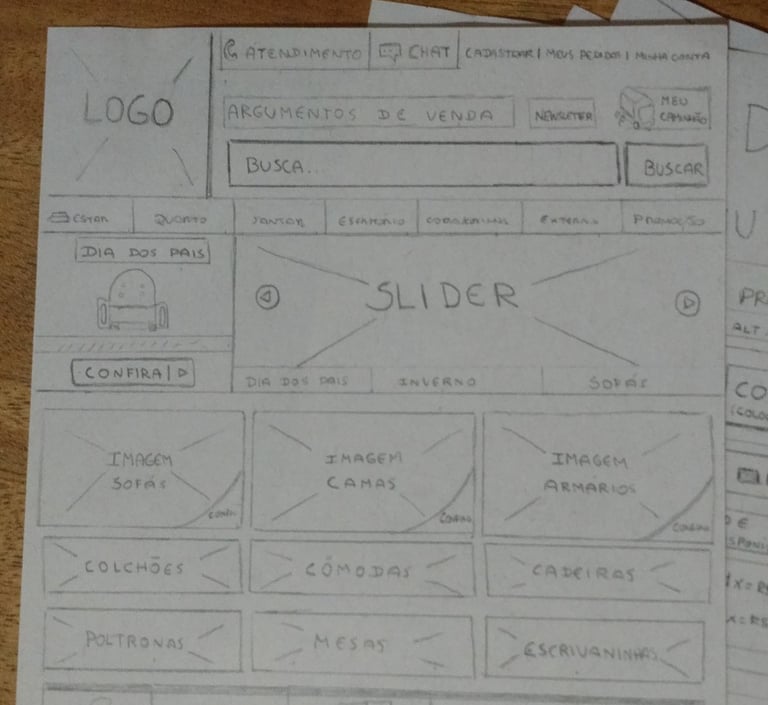 LOGO
ATENDIMENTO
CHAT
CADASTRAR | MEUS PEDIDOS | MINHA CONTA
ARGUMENTOS DE VENDA
NEWSLETTER
MEU
CAMINHÃO
BUSCA...
BUSCAR
ESTAR
QUARTO
JANTAR
ESCRITÓRIO
EXTERNO
PROMOÇÃO
DIA DOS PAIS
CONFIRA
SLIDER
DIA DOS PAIS
INVERNO
SOFÁS
IMAGEM
SOFÁS
IMAGEM
CAMAS
CONFIRA
IMAGEM
ARMÁRIOS
CONFIRA
COLCHÕES
CÔMODAS
CADEIRAS
POLTRONAS
MESAS
ESCRIVANINHAS